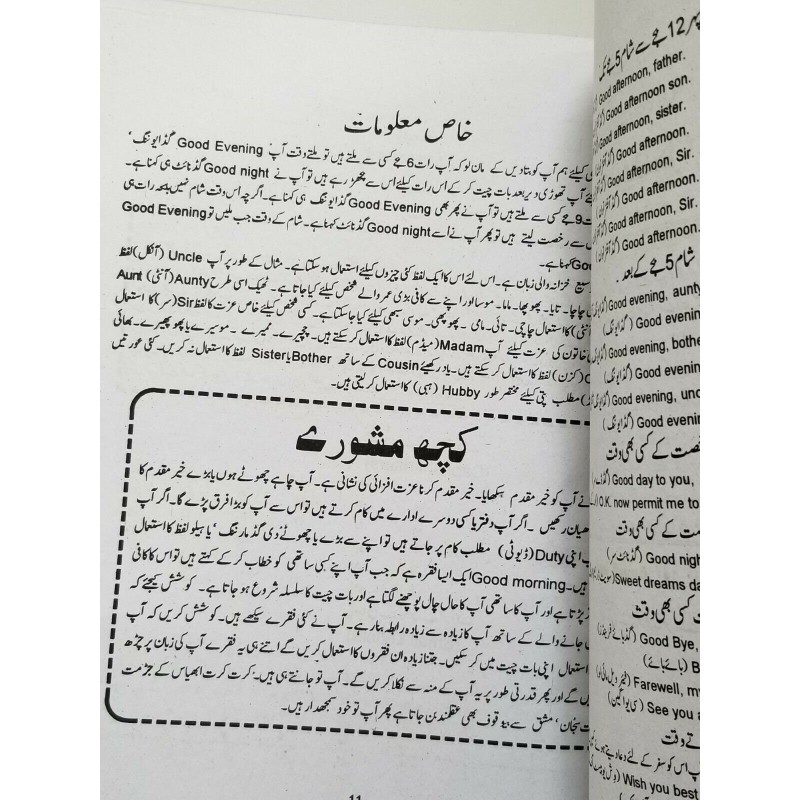 خاص معلومات
کیلئے ہم آپ کو بتادیں کے مان لو کہ آپ رات 6 بجے کسی سے ملتے ہیں تو ملتے وقت آپ Good Evening گڈایوننگ‘
آپ تھوڑی دیر بعد بات چیت کر کے اس رات کیلئے اس سے بچھڑ رہے ہیں تو آپ نے Good night گڈ نائٹ کہنا ہے۔
9 بجے کسی سے ملتے ہیں تو آپ نے پھر بھی Good Evening گڈایوننگ ہی کہنا ہے۔ اگرچہ اس وقت شام نہیں بلکہ رات ہی
سے رخصت لیتے ہیں تو پھر آپ نے اُسے Good night گڈ نائٹ کہنا ہے۔ شام کے وقت جب ملیں تو Good Evening
کہنا ہے۔
وسیع خزانہ والی زبان ہے۔ اس لئے اس کا ایک لفظ کئی چیزوں کیلئے استعمال ہو سکتا ہے۔ مثال کے طور پر آپ Uncle (انکل) لفظ
چاچا۔ تایا۔ پھوپھا۔ ماما۔ موسا اور اپنے سے کافی بڑی عمر والے شخص کیلئے کیا جاتا ہے۔ ٹھیک اسی طرح Aunty (آنٹی) Aunt
(آنٹی) کا استعمال چاچی۔ تائی۔ مامی۔ پھوپھی۔ موسی سبھی کیلئے کیا جاسکتا ہے۔ کسی شخص کیلئے خاص عزت کا لفظ Sir (سر) کا استعمال
خاتون کی عزت کیلئے آپ Madam (میڈم) لفظ کا استعمال کر سکتے ہیں۔ چچیرے۔ ممیرے۔ موسیرے یا پھوپھیرے۔ بھائی
(کزن) لفظ کا استعمال کر سکتے ہیں۔ یاد رکھیئے Cousin کے ساتھ Bother یا Sister لفظ کا استعمال نہ کریں۔ کئی عورتیں
مطلب پتی کیلئے مختصر طور Hubby (ہبی) کا استعمال کر لیتی ہیں۔
کچھ مشورے
نے آپ کو خیر مقدم سکھایا۔ خیر مقدم کرنا عزت افزائی کی نشانی ہے۔ آپ چاہے چھوٹے ہوں یا بڑے خیر مقدم کا
دھیان رکھیں۔ اگر آپ دفتر یا کسی دوسرے ادارے میں کام کرتے ہیں تو اس سے آپ کو بڑا فرق پڑے گا۔ اگر آپ
اپنی Duty (ڈیوٹی) مطلب کام پر جاتے ہیں تو اپنے سے بڑے یا چھوٹے کو بھی گڈ مارننگ‘ یا ہیلو لفظ کا استعمال
ہیں۔ Good morning ایک ایسا فقرہ ہے کہ جب آپ اپنے کسی ساتھی کو خطاب کر کے کہتے ہیں تو اس کا کافی
پڑتا ہے اور آپ کا ساتھی آپ کا حال چال پوچھنے لگتا ہے اور بات چیت کا سلسلہ شروع ہو جاتا ہے۔ کوشش کیجئے کہ
جاننے والے کے ساتھ آپ کا زیادہ سے زیادہ رابطہ بنا رہے۔ آپ نے کئی فقرے سیکھے ہیں۔ کوشش کریں کہ آپ
استعمال اپنی بات چیت میں کر سکیں۔ جتنا زیادہ ان فقروں کا استعمال کریں گے اتنے ہی یہ فقرے آپ کی زبان پر چڑھ
گے اور پھر قدرتی طور پر یہ آپ کے منہ سے نکلا کریں گے۔ آپ تو جانتے ہی ہیں: کرت کرت ابھیاس کے جڑ مت
سجان‘ مشق سے بیوقوف بھی عقلمند بن جاتا ہے پھر آپ تو خود سمجھدار ہیں۔
11
12 بجے سے شام 5 بجے تک
Good afternoon, father.
Good afternoon son.
Good afternoon, sister.
Good afternoon.
Good afternoon, Sir.
Good afternoon.
Good afternoon, Sir.
Good afternoon.
شام 5 بجے کے بعد۔
Good evening, aunty
Good evenin (گڈایوننگ)
Good evening, bothe
Good evenin (گڈایوننگ)
Good evening, unc
Good evenin (گڈایوننگ)
رخصت کے کسی بھی وقت
Good day to you,
O.K. now permit me to
کے کسی بھی وقت
Good nigh
Sweet dreams da
کسی بھی وقت
Good Bye,
B (بائے بائے)
Farewell, my
See you a (سی یو اگین)
وقت
آپ اس کو سفر کے لئے دعا دیتے ہوئے
Wish you best